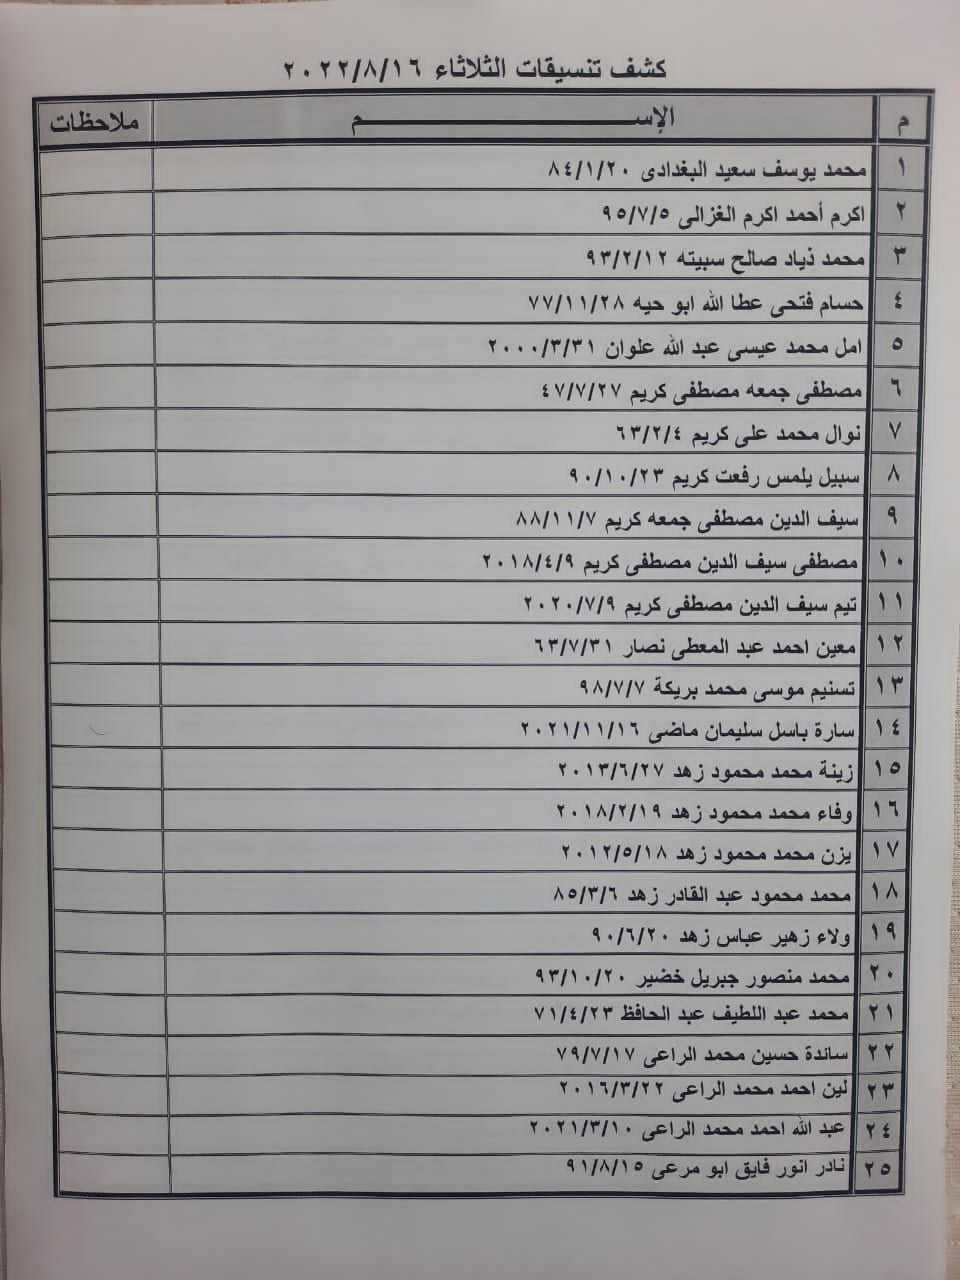 كشف تنسيقات الثلاثاء ٢٠٢٢/٨/١٦
م الإســـــــــــــــــــم ملاحظات
١ محمد يوسف سعيد البغدادى ٨٤/١/٢٠
٢ اكرم أحمد اكرم الغزالى ٩٥/٧/٥
٣ محمد ذياد صالح سبيته ٩٣/٢/١٢
٤ حسام فتحى عطا الله ابو حيه ٧٧/١١/٢٨
٥ امل محمد عيسى عبد الله علوان ٢٠٠٠/٣/٣١
٦ مصطفى جمعه مصطفى كريم ٤٧/٧/٢٧
٧ نوال محمد على كريم ٦٣/٢/٤
٨ سبيل يلمس رفعت كريم ٩٠/١٠/٢٣
٩ سيف الدين مصطفى جمعه كريم ٨٨/١١/٧
١٠ مصطفى سيف الدين مصطفى كريم ٢٠١٨/٤/٩
١١ تيم سيف الدين مصطفى كريم ٢٠٢٠/٧/٩
١٢ معين احمد عبد المعطى نصار ٦٣/٧/٣١
١٣ تسنيم موسى محمد بريكة ٩٨/٧/٧
١٤ سارة باسل سليمان ماضى ٢٠٢١/١١/١٦
١٥ زينة محمد محمود زهد ٢٠١٣/٦/٢٧
١٦ وفاء محمد محمود زهد ٢٠١٨/٢/١٩
١٧ يزن محمد محمود زهد ٢٠١٢/٥/١٨
١٨ محمد محمود عبد القادر زهد ٨٥/٣/٦
١٩ ولاء زهير عباس زهد ٩٠/٦/٢٠
٢٠ محمد منصور جبريل خضير ٩٣/١٠/٢٠
٢١ محمد عبد اللطيف عبد الحافظ ٧١/٤/٢٣
٢٢ ساندة حسين محمد الراعى ٧٩/٧/١٧
٢٣ لين احمد محمد الراعى ٢٠١٦/٣/٢٢
٢٤ عبد الله احمد محمد الراعى ٢٠٢١/٣/١٠
٢٥ نادر انور فايق ابو مرعى ٩١/٨/١٥